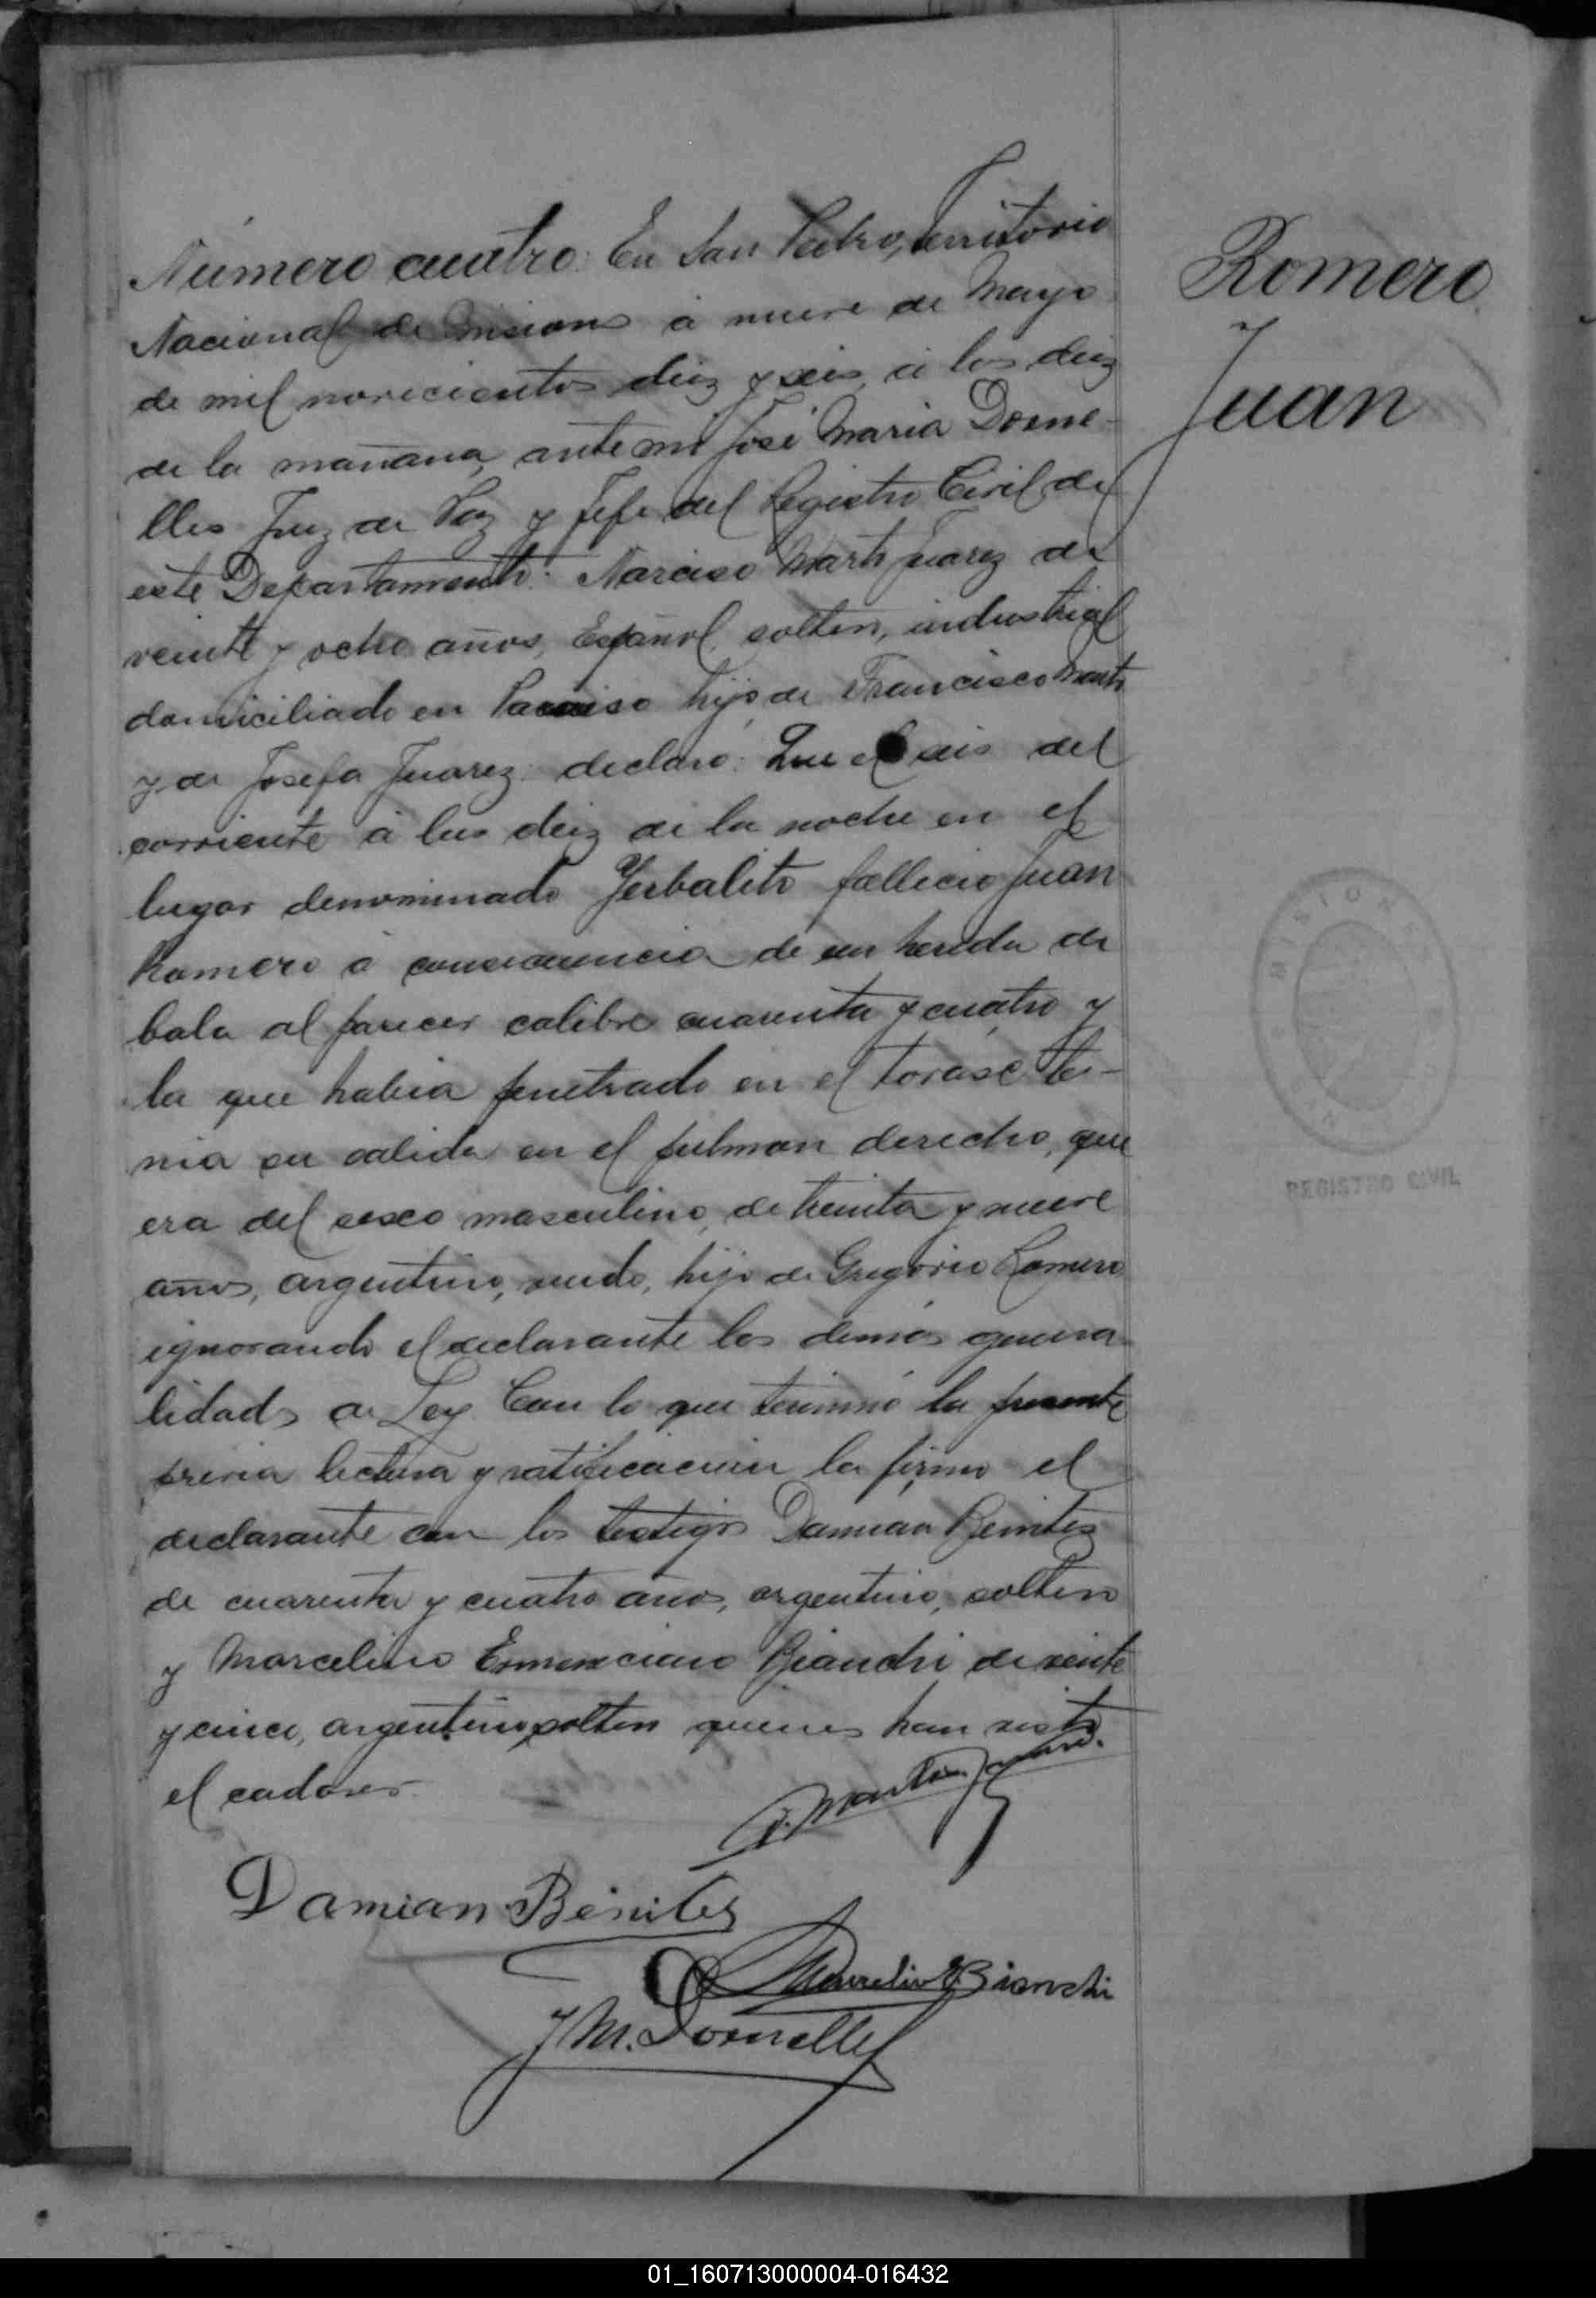 Número cuatro: En San Pedro, territorio
Nacional de Misiones á nueve de Mayo
de mil novecientos diez y seis, á las diez
de la mañana, ante mi José Maria Dorne-
lles Juez de Paz y Jefe del Registro Civil de
este Departamento: Narciso Marti Juarez de
veinte y ocho años, Español, soltero, industrial
domiciliado en Paraiso hijo de Francisco Marti
y de Josefa Juarez: declaró: Que el seis del
corriente á las diez de la noche en el
lugar denominado Yerbalito fallecio Juan
Romero á consecuencia de un herida de
bala al parecer calibre cuarenta y cuatro y
la que habia penetrado en el torásc te-
nia su salida en el pulmon derecho, que
era del sesco masculino, de treinta y nueve
años, argentino, viudo, hijo de Gregorio Romero
ignorando el declarante las demás genera-
lidads de Ley. Con lo que terminó la presente
previa lectura y ratificacion la firmo el
declarante con los testigos Damian Benites
de cuarenta y cuatro años, argentino, soltero
y Marcelino Bianchi de veinte
y cinco, argentino, soltero quienes han visto
el cadaver.
Romero
Juan
Damian Benites
Bianchi
J M. Dornelles
MISIONES
REGISTRO CIVIL
01_160713000004-016432